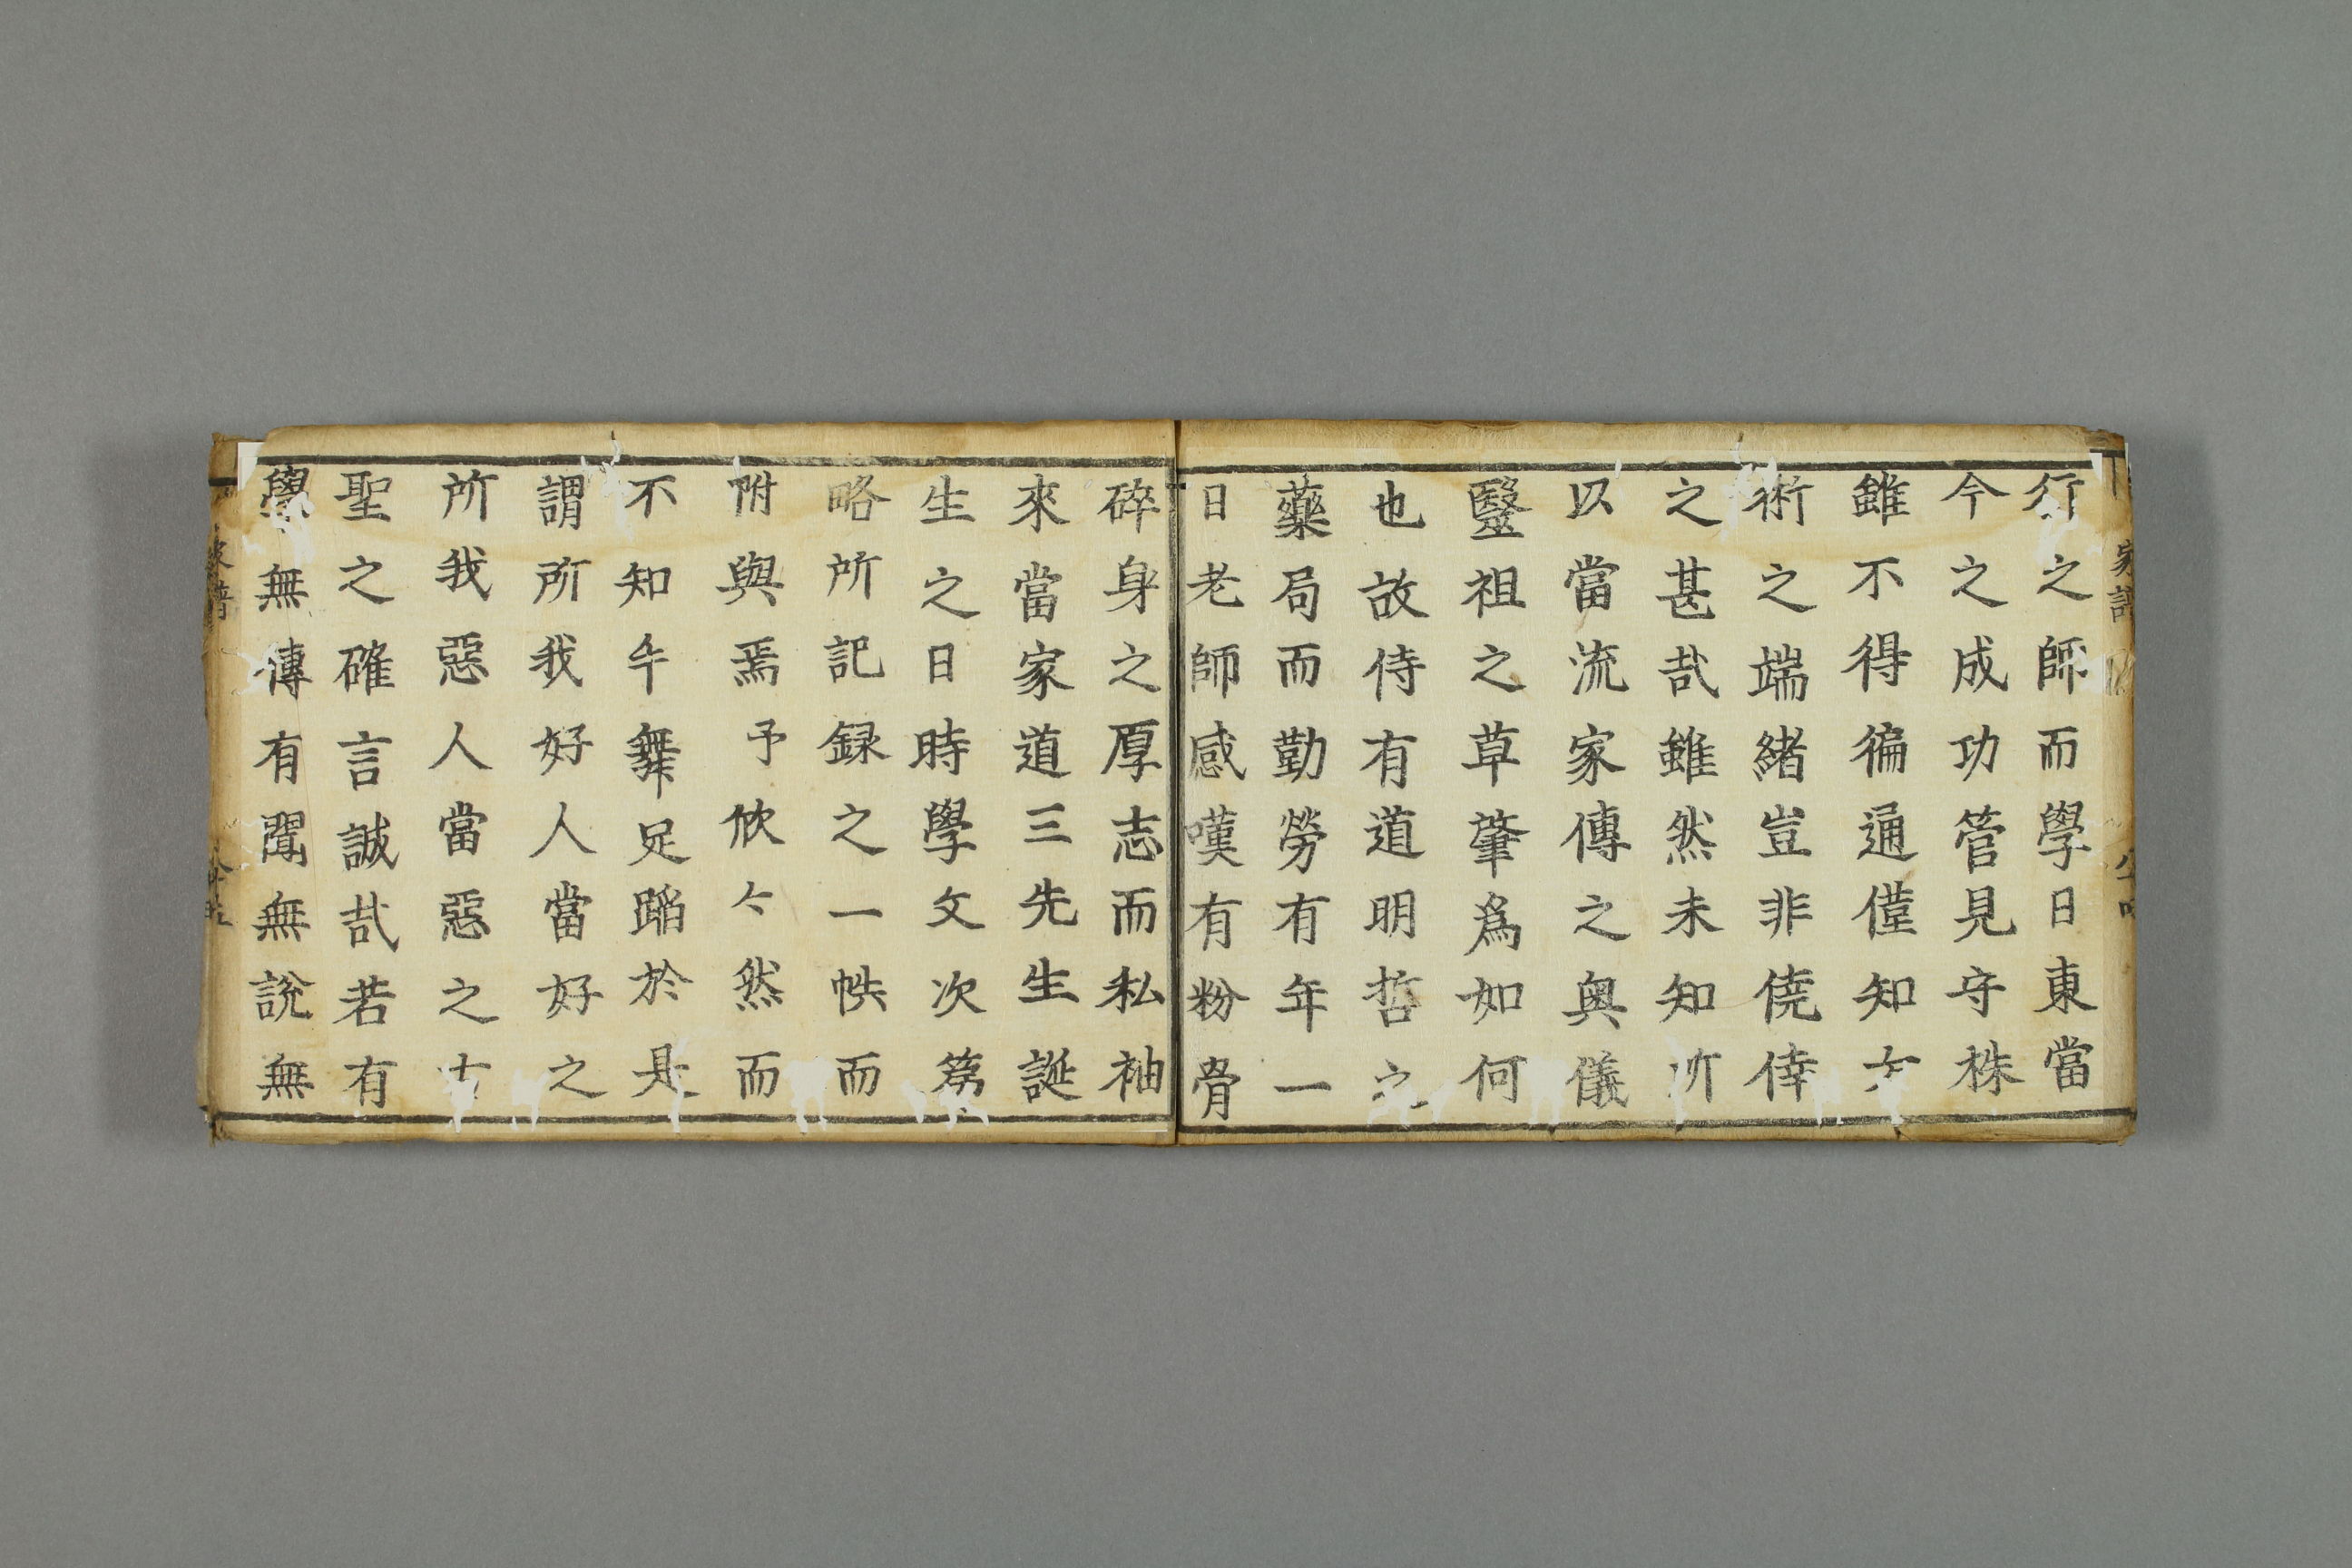 行之師而學日東當
今之成功管見守株
雖不得徧通僅知
術之端緒豈非僥倖
之甚哉雖然未知所
以當流家傳之奥儀
毉祖之草肇爲如何
也故侍有道明哲之
藥局而勤勞有年一
日老師感嘆有粉骨
碎身之厚志而私袖
來當家道三先生誕
生之日時學文次第
略所記録之一帙而
附與焉予欣々然而
不知手舞足蹈於是
謂所我好人當好之
所我惡人當惡之古
聖之確言誠哉若有
學無傳有聞無説無
家譜